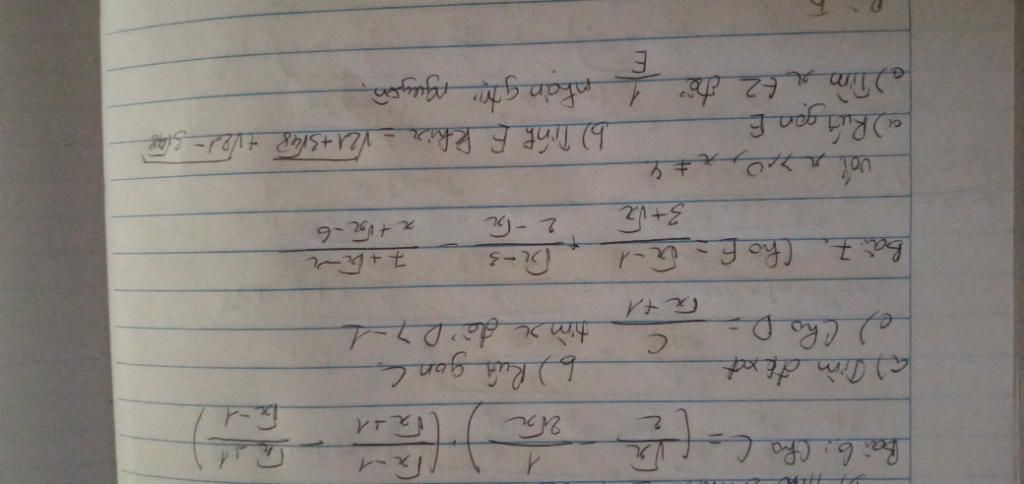 Bài 6: Cho C = (√x/2 - 1/2√x) . (√x-1/√x+1 - √x+1/√x-1)
a) Tìm đkxđ b) Rút gọn C.
c) Cho D = C/√x+1 tìm x để D > -1
Bài 7. Cho E = √x-1/3+√x + √x-3/2-√x - 7+√x-x/x+√x-6
với x ≥ 0, x ≠ 4
a) Rút gọn E b) Tính E khi x = √21+3√48 + √21-3√48
c) Tìm x ∈ Z để 1/E nhận gtrị nguyên.